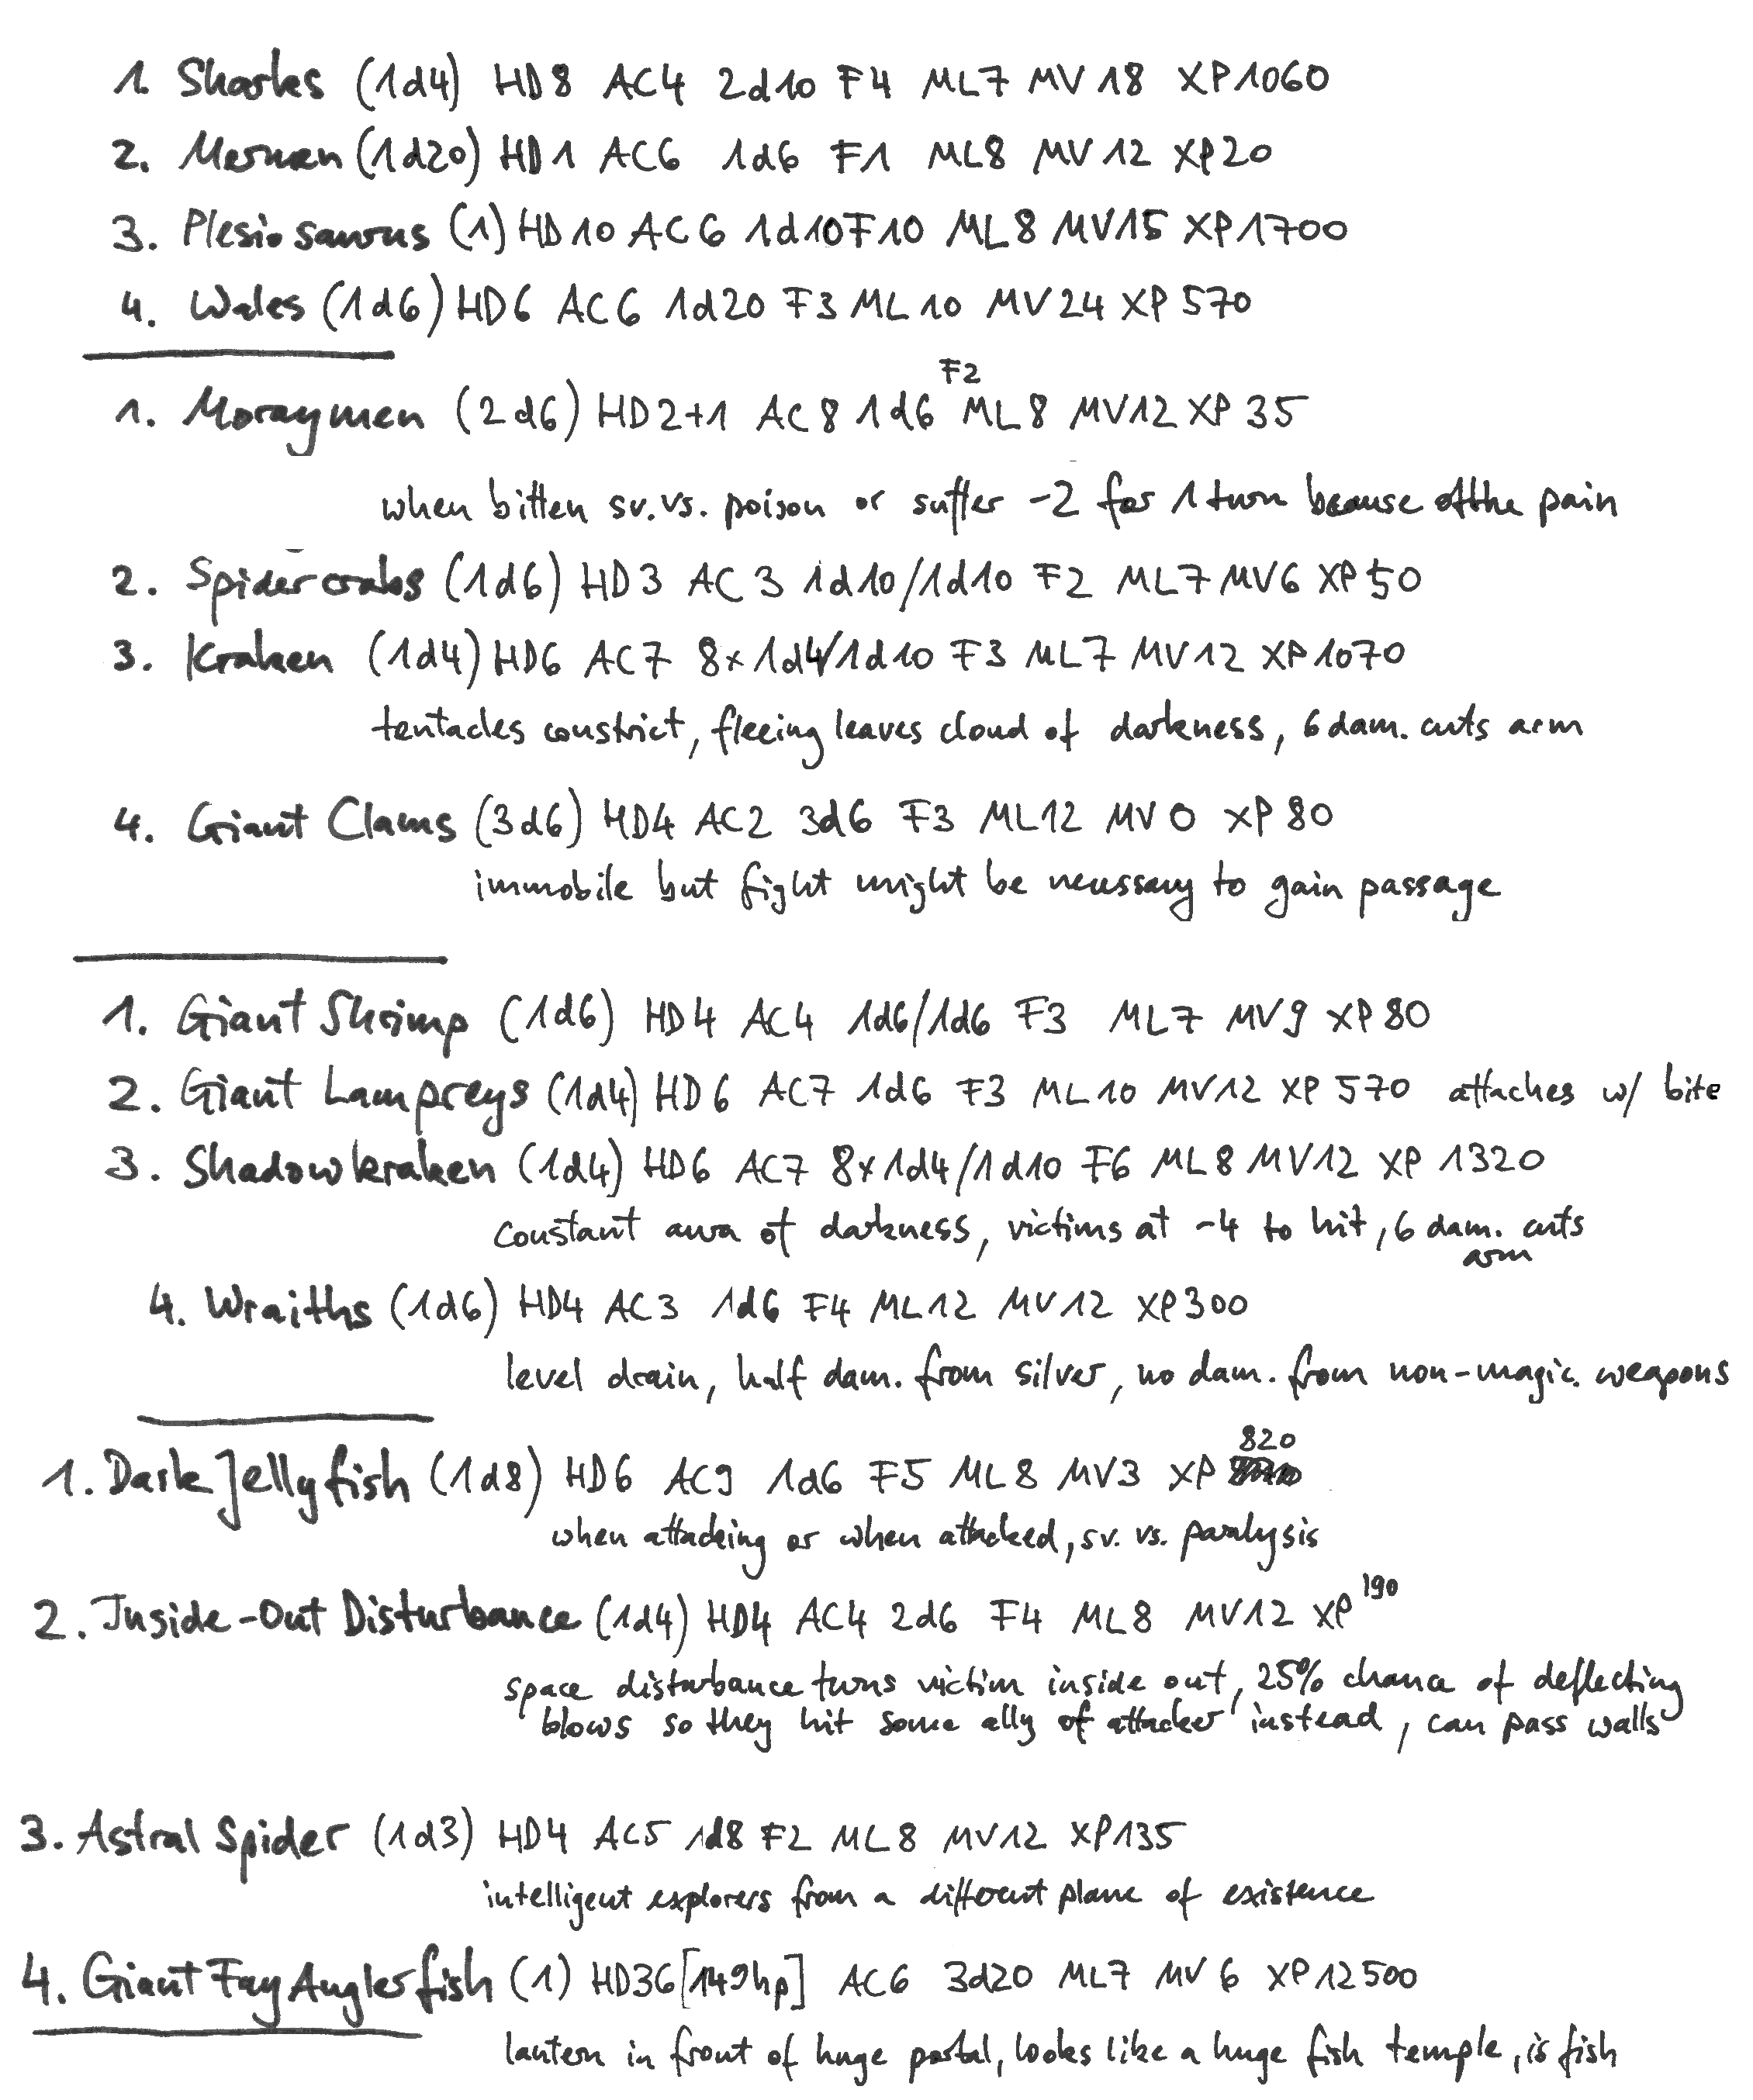 1. Sharks (1d4) HD8 AC4 2d10 F4 ML7 MV18 XP1060
2. Mermen (1d20) HD1 AC6 1d6 F1 ML8 MV12 XP20
3. Plesiosaurus (1) HD10 AC6 1d10 F10 ML8 MV15 XP1700
4. Wales (1d6) HD6 AC6 1d20 F3 ML10 MV24 XP570
F2
1. Moraymen (2d6) HD2+1 AC8 1d6 ML8 MV12 XP35
when bitten sv. vs. poison or suffer -2 for 1 turn because of the pain
2. Spidercrabs (1d6) HD3 AC3 1d10/1d10 F2 ML7 MV6 XP50
3. Kraken (1d4) HD6 AC7 8x1d4/1d10 F3 ML7 MV12 XP1070
tentacles constrict, fleeing leaves cloud of darkness, 6 dam. cuts arm
4. Giant Clams (3d6) HD4 AC2 3d6 F3 ML12 MV0 XP80
immobile but fight might be necessary to gain passage
1. Giant Shrimp (1d6) HD4 AC4 1d6/1d6 F3 ML7 MV9 XP80
2. Giant Lampreys (1d4) HD6 AC7 1d6 F3 ML10 MV12 XP570 attaches w/ bite
3. Shadowkraken (1d4) HD6 AC7 8x1d4/1d10 F6 ML8 MV12 XP 1320
constant aura of darkness, victims at -4 to hit, 6 dam. cuts
arm
4. Wraiths (1d6) HD4 AC3 1d6 F4 ML12 MV12 XP300
level drain, half dam. from silver, no dam. from non-magic. weapons
820
1. Dark Jellyfish (1d8) HD6 AC9 1d6 F5 ML8 MV3 XP
when attacking or when attacked, sv. vs. paralysis
2. Inside-Out Disturbance (1d4) HD4 AC4 2d6 F4 ML8 MV12 XP 190
space disturbance turns victim inside out, 25% chance of deflecting
blows so they hit some ally of attacker instead, can pass walls
3. Astral Spider (1d3) HD4 AC5 1d8 F2 ML8 MV12 XP135
intelligent explorers from a different plane of existence
4. Giant Fay Anglerfish (1) HD36 [149hp] AC6 3d20 ML7 MV6 XP12500
lantern in front of huge portal, looks like a huge fish temple, is fish